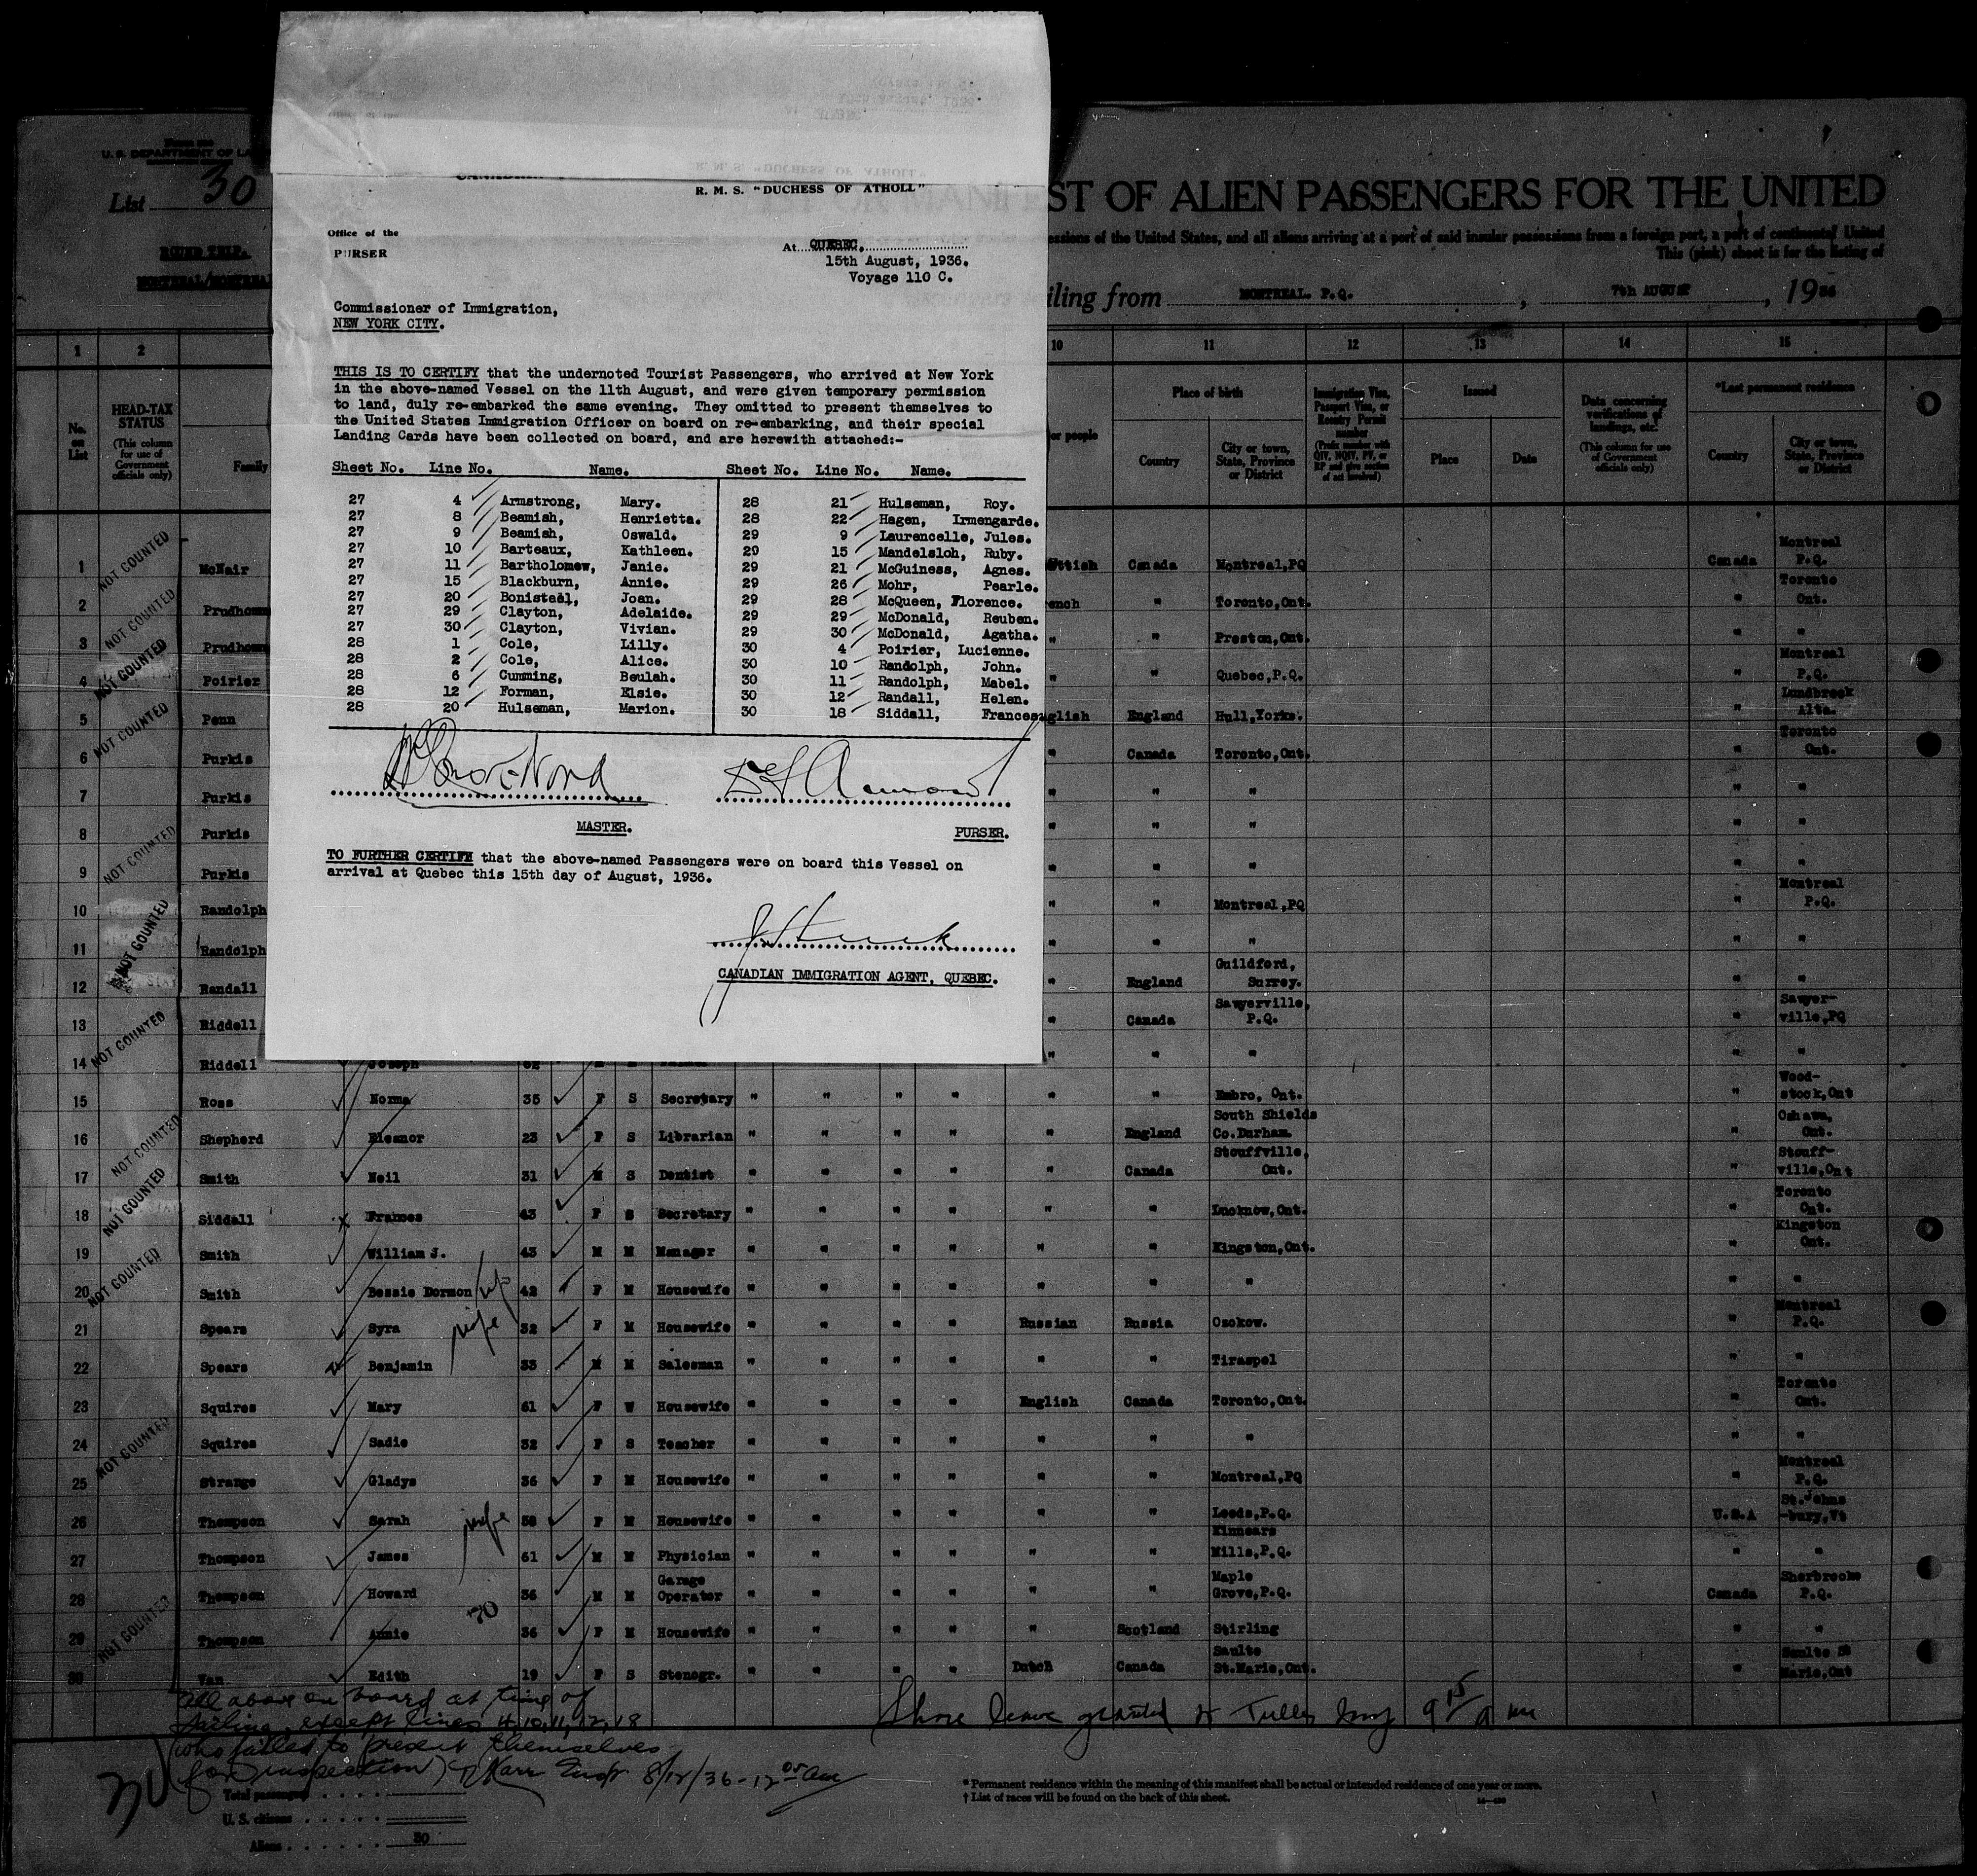 U. S. DEPARTMENT OF LA
List 30
ROUND TRIP.
MONTREAL/MONTREAL
R. M. S. "DUCHESS OF ATHOLL"
Office of the
PURSER
At QUEBEC.
15th August, 1936.
Voyage 110 C.
Commissioner of Immigration,
NEW YORK CITY.
THIS IS TO CERTIFY that the undernoted Tourist Passengers, who arrived at New York
in the above-named Vessel on the 11th August, and were given temporary permission
to land, duly re-embarked the same evening. They omitted to present themselves to
the United States Immigration Officer on board on re-embarking, and their special
Landing Cards have been collected on board, and are herewith attached:-
Sheet No. Line No. Name. Sheet No. Line No. Name.
27 4 Armstrong, Mary. 28 21 Hulseman, Roy.
27 8 Beamish, Henrietta. 28 22 Hagen, Irmengarde.
27 9 Beamish, Oswald. 29 9 Laurencelle, Jules.
27 10 Barteaux, Kathleen. 29 15 Mandelsloh, Ruby.
27 11 Bartholomew, Janie. 29 21 McGuiness, Agnes.
27 15 Blackburn, Annie. 29 26 Mohr, Pearle.
27 20 Bonisteel, Joan. 29 28 McQueen, Florence.
27 29 Clayton, Adelaide. 29 29 McDonald, Reuben.
27 30 Clayton, Vivian. 29 30 McDonald, Agatha.
28 1 Cole, Lilly. 30 4 Poirier, Lucienne.
28 2 Cole, Alice. 30 10 Randolph, John.
28 6 Cumming, Beulah. 30 11 Randolph, Mabel.
28 12 Forman, Elsie. 30 12 Randall, Helen.
28 20 Hulseman, Marion. 30 18 Siddall, Frances
MASTER. PURSER.
TO FURTHER CERTIFY that the above-named Passengers were on board this Vessel on
arrival at Quebec this 15th day of August, 1936.
CANADIAN IMMIGRATION AGENT, QUEBEC.
ST OF ALIEN PASSENGERS FOR THE UNITED
essions of the United States, and all aliens arriving at a port of said insular possessions from a foreign port, a port of continental United
This (pink) sheet is for the listing of
iling from MONTREAL. P.Q. , 7th AUGUST , 1936
1 2 10 11 12 13 14 15
No. on List
HEAD-TAX STATUS
(This column for use of Government officials only)
Family
or people
Place of birth
Country
City or town, State, Province or District
Immigration Visa, Passport Visa, or Reentry Permit number
(Prefix number with QIV, NQIV, PV, or RP and give section of act involved)
Issued
Place
Date
Data concerning verifications of landings, etc.
(This column for use of Government officials only)
*Last permanent residence
Country
City or town, State, Province or District
1 NOT COUNTED McNair ttish Canada Montreal,PQ Canada Montreal P.Q.
2 NOT COUNTED Prudhomm ench " Toronto,Ont. " Toronto Ont.
3 NOT COUNTED Prudhomm " " Preston,Ont. " "
4 Poirier " " Quebec,P.Q. " Montreal P.Q.
5 NOT COUNTED Penn nglish England Hull,Yorks. " Lundbreck Alta.
6 Purkis " Canada Toronto,Ont. " Toronto Ont.
7 Purkis " " " " "
8 NOT COUNTED Purkis " " " " "
9 Purkis " " " " "
10 NOT COUNTED Randolph " " Montreal,PQ " Montreal P.Q.
11 Randolph " " " " "
12 Randall " England Guildford, Surrey. " "
13 NOT COUNTED Riddell " Canada Sawyerville, P.Q. " Sawyer-ville,PQ
14 Riddell Joseph 62 " " " " "
15 Ross Norma 35 F S Secretary " " " " " " Embro, Ont. " Wood-stock,Ont
16 NOT COUNTED Shepherd Eleanor 23 F S Librarian " " " " " England South Shields Co.Durham. " Oshawa, Ont.
17 Smith Neil 31 M S Dentist " " " " " Canada Stouffville, Ont. " Stouff-ville,Ont
18 NOT COUNTED Siddall Frances 43 F S Secretary " " " " " " Lucknow,Ont. " Toronto Ont.
19 Smith William J. 43 M M Manager " " " " " " Kingston,Ont. " Kingston Ont.
20 NOT COUNTED Smith Bessie Dormon 42 F M Housewife " " " " " " " " "
21 Spears Syra wife 32 F M Housewife " " " " Russian Russia Osokow. " Montreal P.Q.
22 Spears Benjamin 33 M M Salesman " " " " " " Tiraspol " "
23 Squires Mary 61 F W Housewife " " " " English Canada Toronto,Ont. " Toronto Ont.
24 NOT COUNTED Squires Sadie 32 F S Teacher " " " " " " " " "
25 Strange Gladys 36 F M Housewife " " " " " " Montreal,PQ " Montreal P.Q.
26 Thompson Sarah wife 58 F M Housewife " " " " " " Leeds,P.Q. U.S.A St.Johns-bury,Vt
27 Thompson James 61 M M Physician " " " " " " Kinnears Mills,P.Q. " "
28 Thompson Howard 36 M M Garage Operator " " " " " " Maple Grove,P.Q. Canada Sherbrooke P.Q.
29 NOT COUNTED Thompson Annie 36 F M Housewife " " " " " Scotland Stirling " "
30 Van Edith 19 F S Stenogr. " " " " Dutch Canada Saulte St.Marie,Ont. " Saulte St Marie,Ont
All above on board at time of
sailing, except lines 4, 10, 11, 12, 18
(who failed to present themselves
for inspection) Karr Insp 8/12/36 - 12 05 am
Shore leave granted Tulley Insp 9 15 am
Total passengers
U. S. citizens
Aliens 30
* Permanent residence within the meaning of this manifest shall be actual or intended residence of one year or more.
† List of races will be found on the back of this sheet.